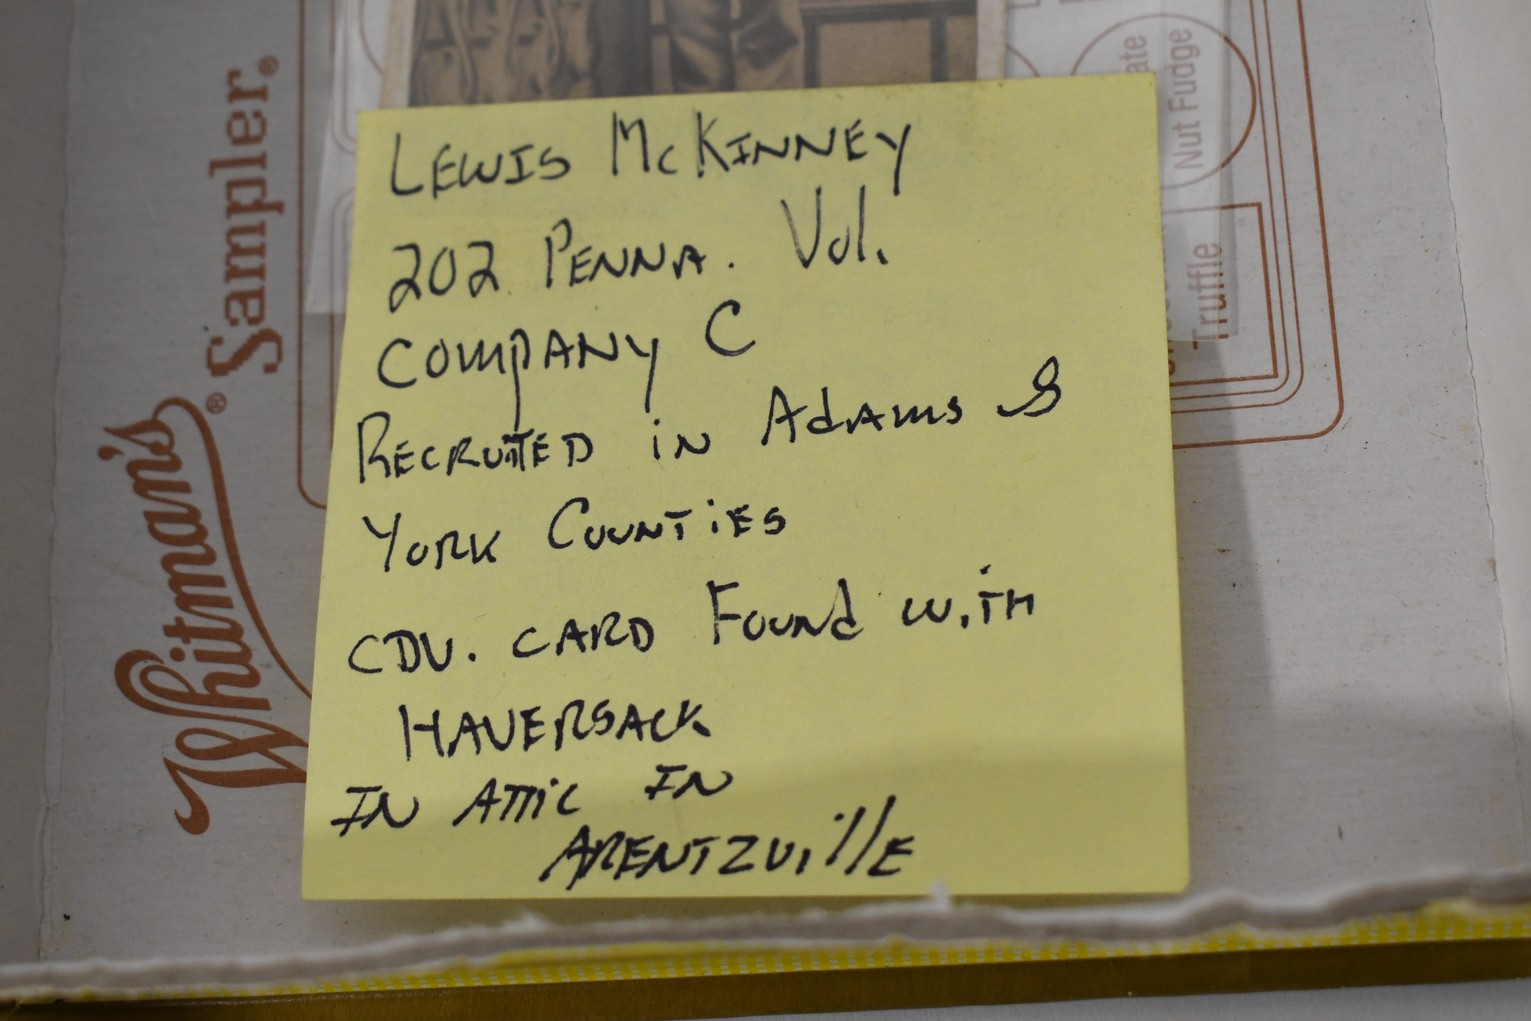 LEWIS McKINNEY
202 PENNA. Vol.
COMPANY C
RECRUITED iN AdAMS &
YORK COUNTiES
CDV. CARD FOUNd WiTH
HAVERSACK
IN ATTiC IN
ARENTZVillE
Whitman's®
Sampler®
ate
Nut Fudge
Truffle